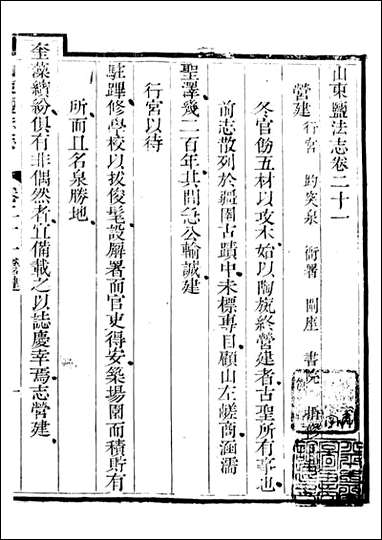 山東鹽法志卷二十一
營建 行宮 趵突泉 衙署 園座 書院
冬官飭五材以攻木始以陶旊終營建者古聖所有事也
前志散列於疆圉古蹟中未標專目顧山左鹺商涵濡
聖澤幾二百年其間急公輸誠建
行宮以待
駐蹕修學校以拔俊髦設廨署而官吏得安築場園而積貯有
所而且名泉勝地
奎藻繽紛俱有非偶然者宜備載之以誌慶幸焉志營建